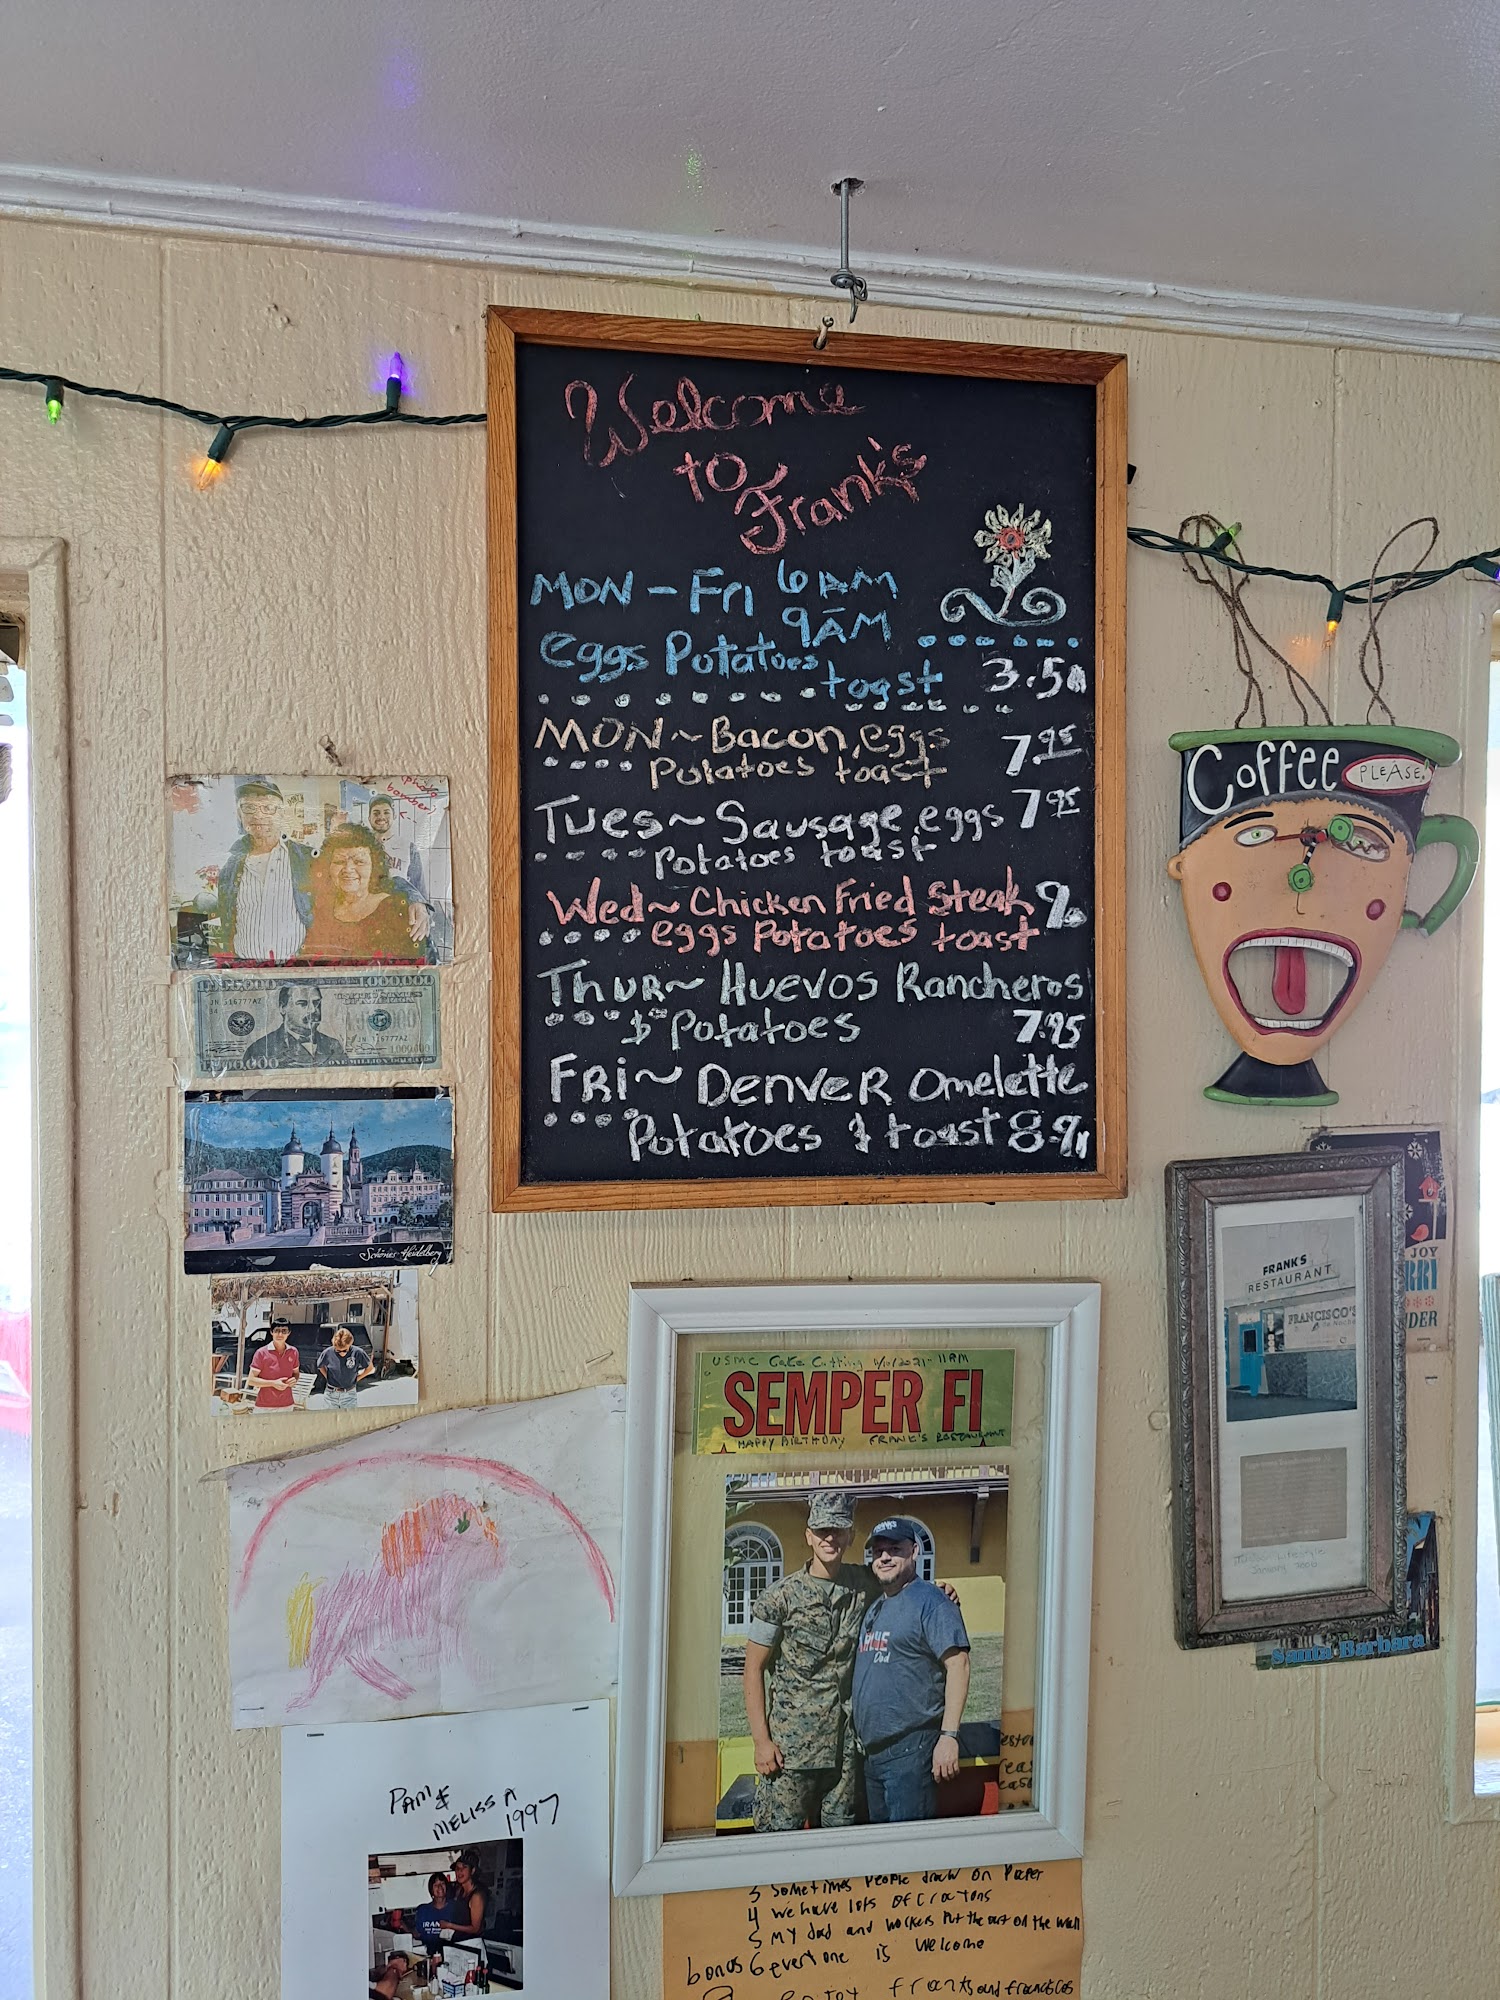 Welcome
to Frank's
MON - Fri 6AM
9AM
eggs Potatoes
toast
MON ~ Bacon, eggs 7.95
Potatoes toast
Tues ~ Sausage, eggs 7.95
Potatoes toast
Wed ~ Chicken Fried Steak
eggs Potatoes toast
Thur ~ Huevos Rancheros
& Potatoes 7.95
FRi ~ Denver Omelette
Potatoes & toast
Coffee PLEASE
photo
bomber!
1000000
JN 516777AZ
ONE MILLION DOLLARS
Schönes Heidelberg
FRANK'S
RESTAURANT
FRANCISCO'S
JOY
Santa Barbara
USMC Cake Cutting 11AM
SEMPER FI
HAPPY BIRTHDAY FRANK'S RESTAURANT
Dad
PAM &
MELISSA
1997
3 Sometimes People draw on Paper
4 We have lots of Crayons
5 MY dad and workers Put the art on the wall
bonus 6 everyone is welcome